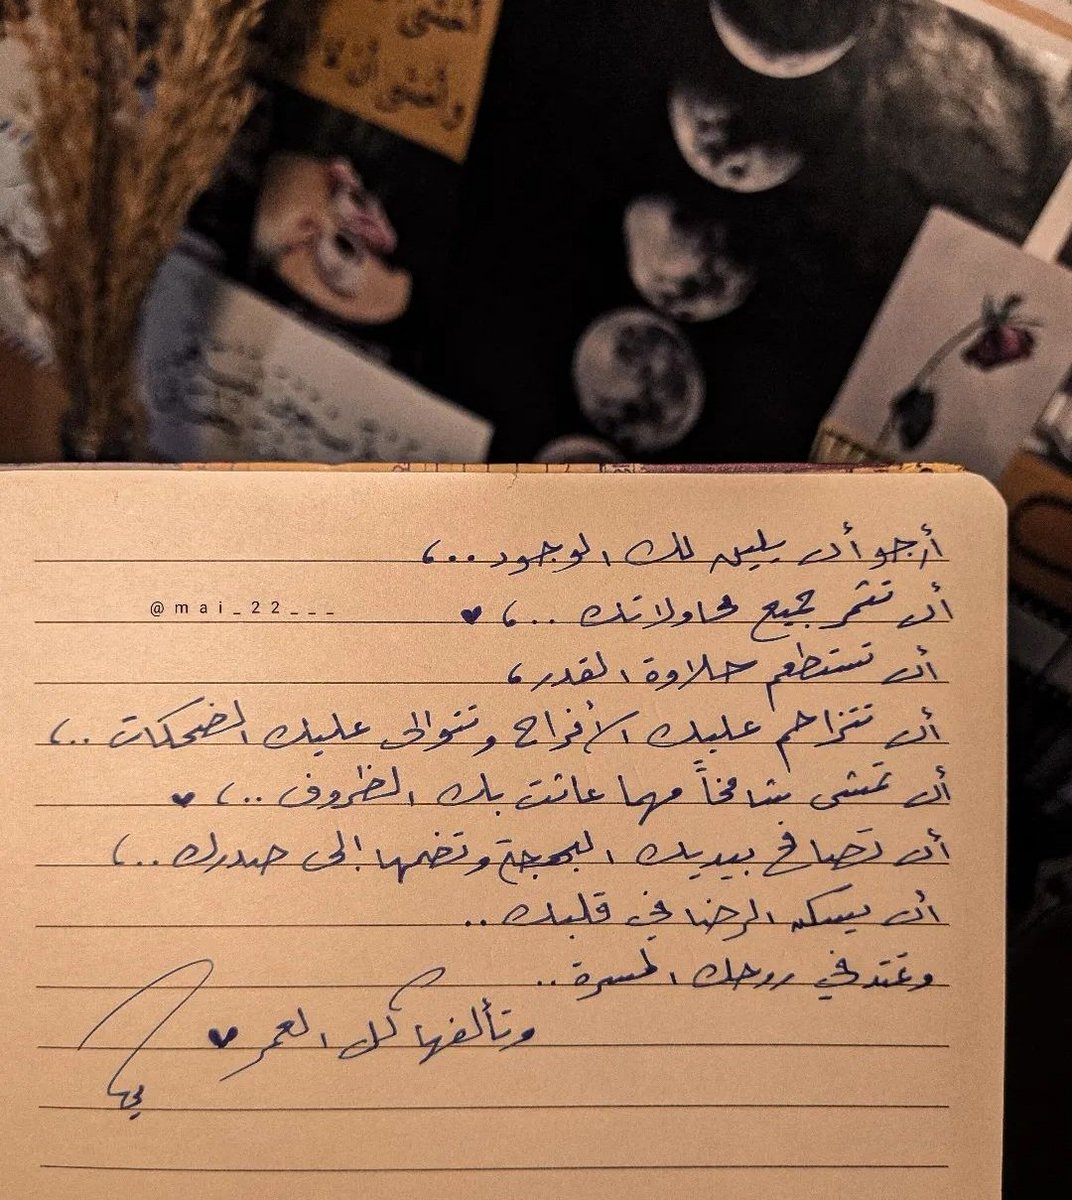 أخشى
وأخشى أن لا
أرجو أن يلين لك الوجود..،
@mai_22___
أن تثمر جميع محاولاتك ..، ♥
أن تستطعم حلاوة القدر،
أن تتزاحم عليك الأفراح وتتوالى عليك الضحكات ..،
أن تمشي شامخاً مهما عاثت بك الظروف ..، ♥
أن تصافح بيديك البهجة وتضمها إلى صدرك ..،
أن يسكن الرضا في قلبك ..
وتمتد في روحك المسرة ..
وتألفها كل العمر ♥
مي